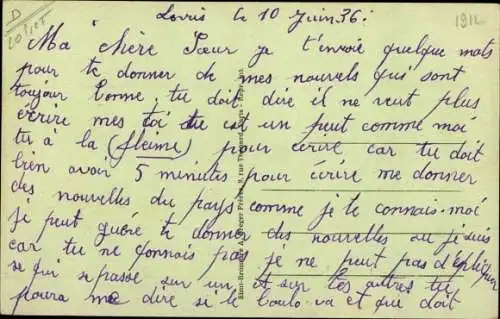 Lorris le 10 Juin 36.
1912
D
Ma chère Sœur je t'envoie quelque mots
pour te donner de mes nouvels qui sont
toujour bonne, tu doit dire il ne veut plus
écrire mes toi tu est un peut comme moi
tu à la (fleime) pour écrire car tu doit
bien avoir 5 minutes pour écrire me donner
des nouvelles du pays comme je te connais. moi
je peut guère te donner des nouvelles ou je suis
car tu ne connais pas je ne peut pas d'épliquer
se qui se passe sur un et sur les autres tu
poura me dire si le boulo va et que doit